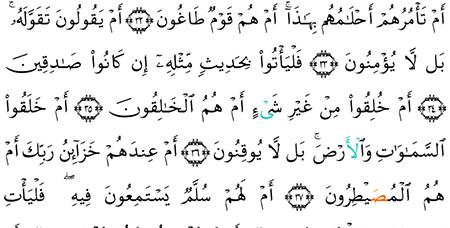 أَمْ تَأْمُرُهُمْ أَحْلَـٰمُهُم بِهَـٰذَآ ۚ أَمْ هُمْ قَوْمٌ طَاغُونَ ﴿٣٢﴾ أَمْ يَقُولُونَ تَقَوَّلَهُۥ ۚ
بَل لَّا يُؤْمِنُونَ ﴿٣٣﴾ فَلْيَأْتُوا۟ بِحَدِيثٍ مِّثْلِهِۦٓ إِن كَانُوا۟ صَـٰدِقِينَ
﴿٣٤﴾ أَمْ خُلِقُوا۟ مِنْ غَيْرِ شَىْءٍ أَمْ هُمُ ٱلْخَـٰلِقُونَ ﴿٣٥﴾ أَمْ خَلَقُوا۟
ٱلسَّمَـٰوَٰتِ وَٱلْأَرْضَ ۚ بَل لَّا يُوقِنُونَ ﴿٣٦﴾ أَمْ عِندَهُمْ خَزَآئِنُ رَبِّكَ أَمْ
هُمُ ٱلْمُصَۣيْطِرُونَ ﴿٣٧﴾ أَمْ لَهُمْ سُلَّمٌ يَسْتَمِعُونَ فِيهِ ۖ فَلْيَأْتِ